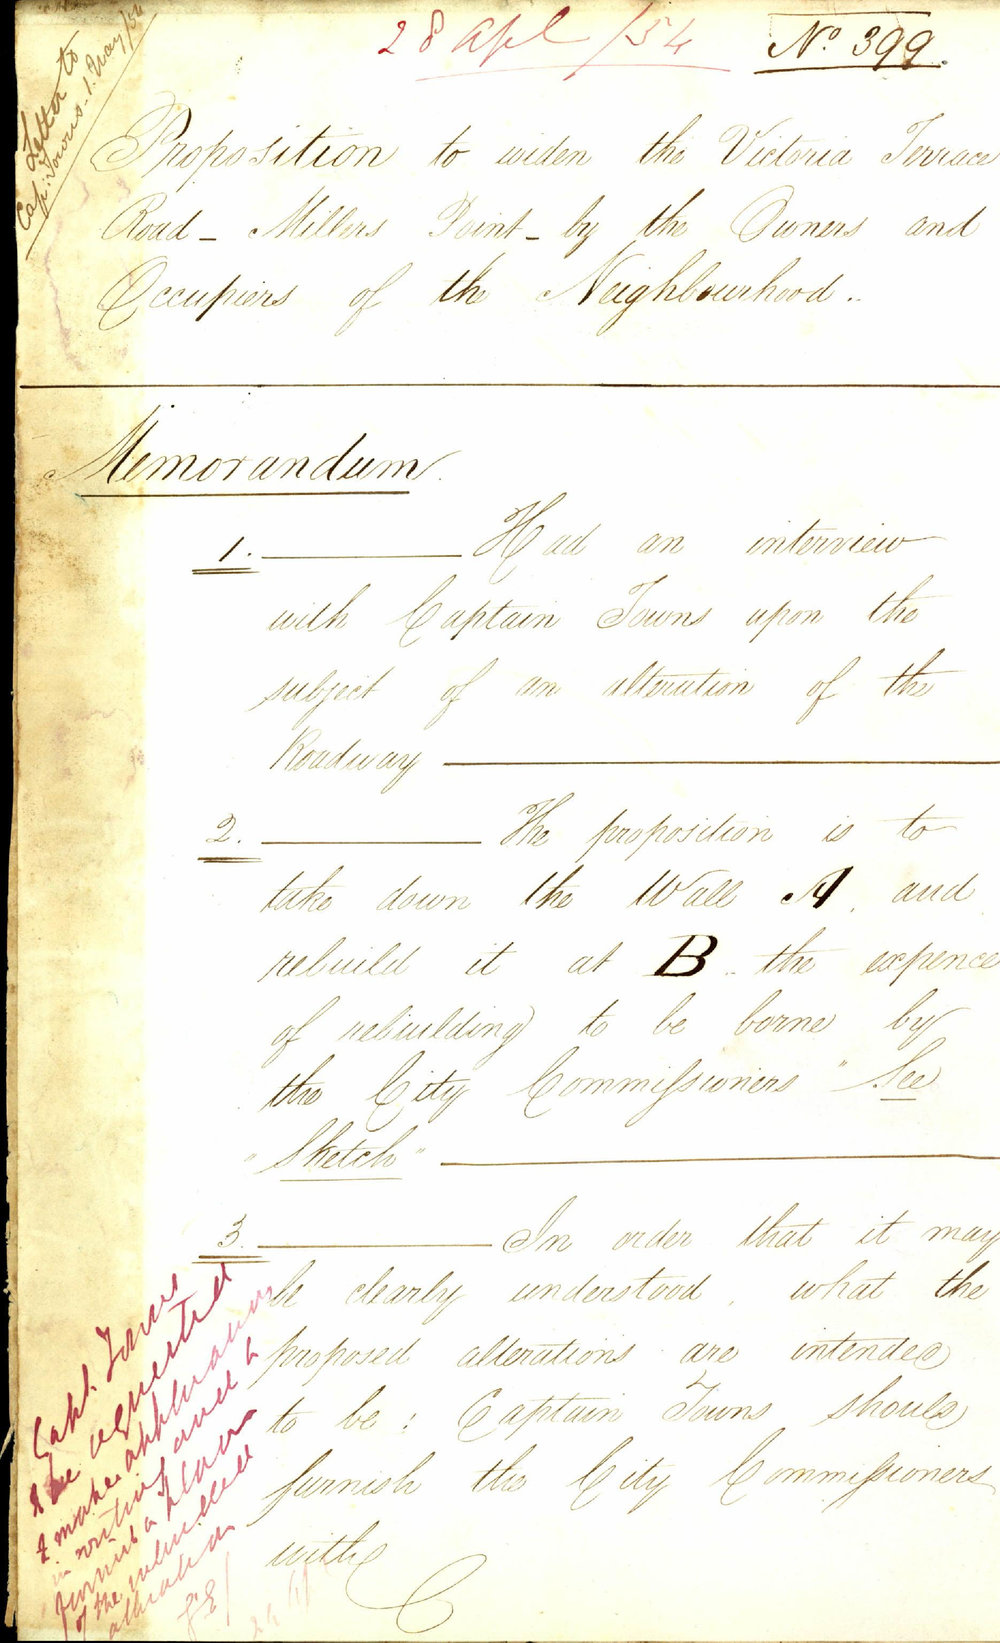 Letter to
Cap: Towns. 1. May/54
28 Apl /54
No. 399.
Proposition to widen the Victoria Terrace
Road - Millers Point - by the Owners and
Occupiers of the Neighbourhood..
Memorandum.
1. Had an interview
with Captain Towns upon the
subject of an alteration of the
Roadway
2. The proposition is to
take down the Wall A. and
rebuild it at B.. the expence
of rebuilding to be borne by
the City Commissioners "See
"Sketch"
3. In order that it may
be clearly understood, what the
proposed alterations are intended
to be: Captain Towns should
furnish the City Commissioners
with
Capt. Towns
to be requested
to make application
in writing and to
furnish a plan
of the intended
alteration